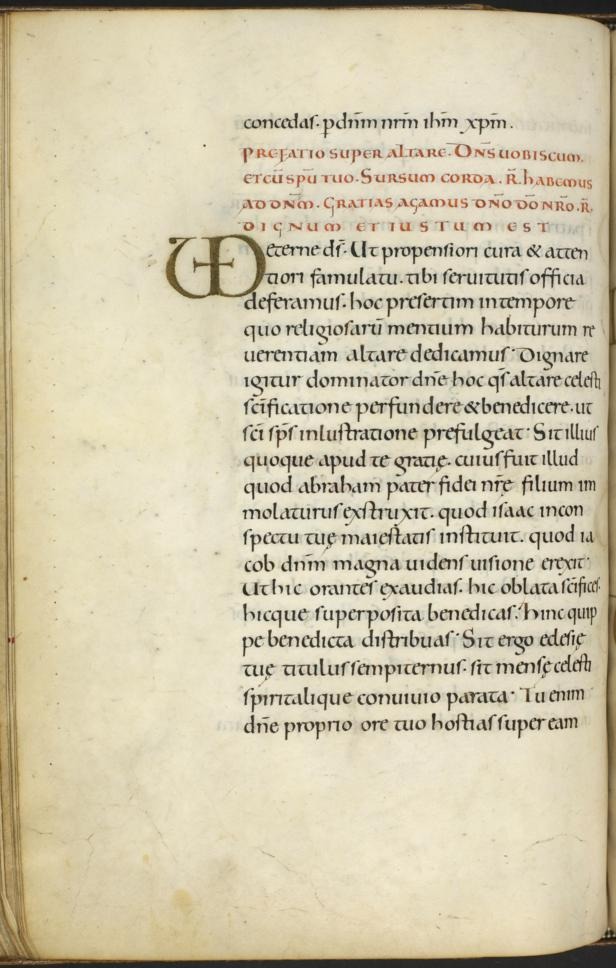 concedas. p dnm nrm ihm xpm.
PREFATIO SUPER ALTARE. DNS UOBISCUM.
ET CŪ SPŪ TUO. SURSUM CORDA. R̄. hABEMUS
AD DNM. GRATIAS AGAMUS DNO DO NRO. R̄.
DIGNUM ET IUSTUM EST
VD eterne ds̄. Ut propensiori cura & atten
tiori famulatu. tibi seruitutis officia
deferamus. hoc presertim in tempore
quo religiosarū mentium habiturum re
uerentiam altare dedicamus. Dignare
igitur dominator dn̄e hoc qs̄ altare celesti
sc̄ificatione perfundere & benedicere. ut
sc̄i sp̄s inlustratione prefulgeat. Sit illius
quoque apud te gratię. cuius fuit illud
quod abraham pater fidei nr̄e filium im
molaturus exstruxit. quod isaac incon
spectu tuę maiestatis instituit. quod ia
cob dnm magna uidens uisione erexit.
Ut hic orantes exaudias. hic oblata sc̄ifices.
hicque superposita benedicas. hinc quip
pe benedicta distribuas. Sit ergo eclesię
tuę titulus sempiternus. sit mensę celesti
spiritalique conuiuio parata. Tu enim
dn̄e proprio ore tuo hostias super eam